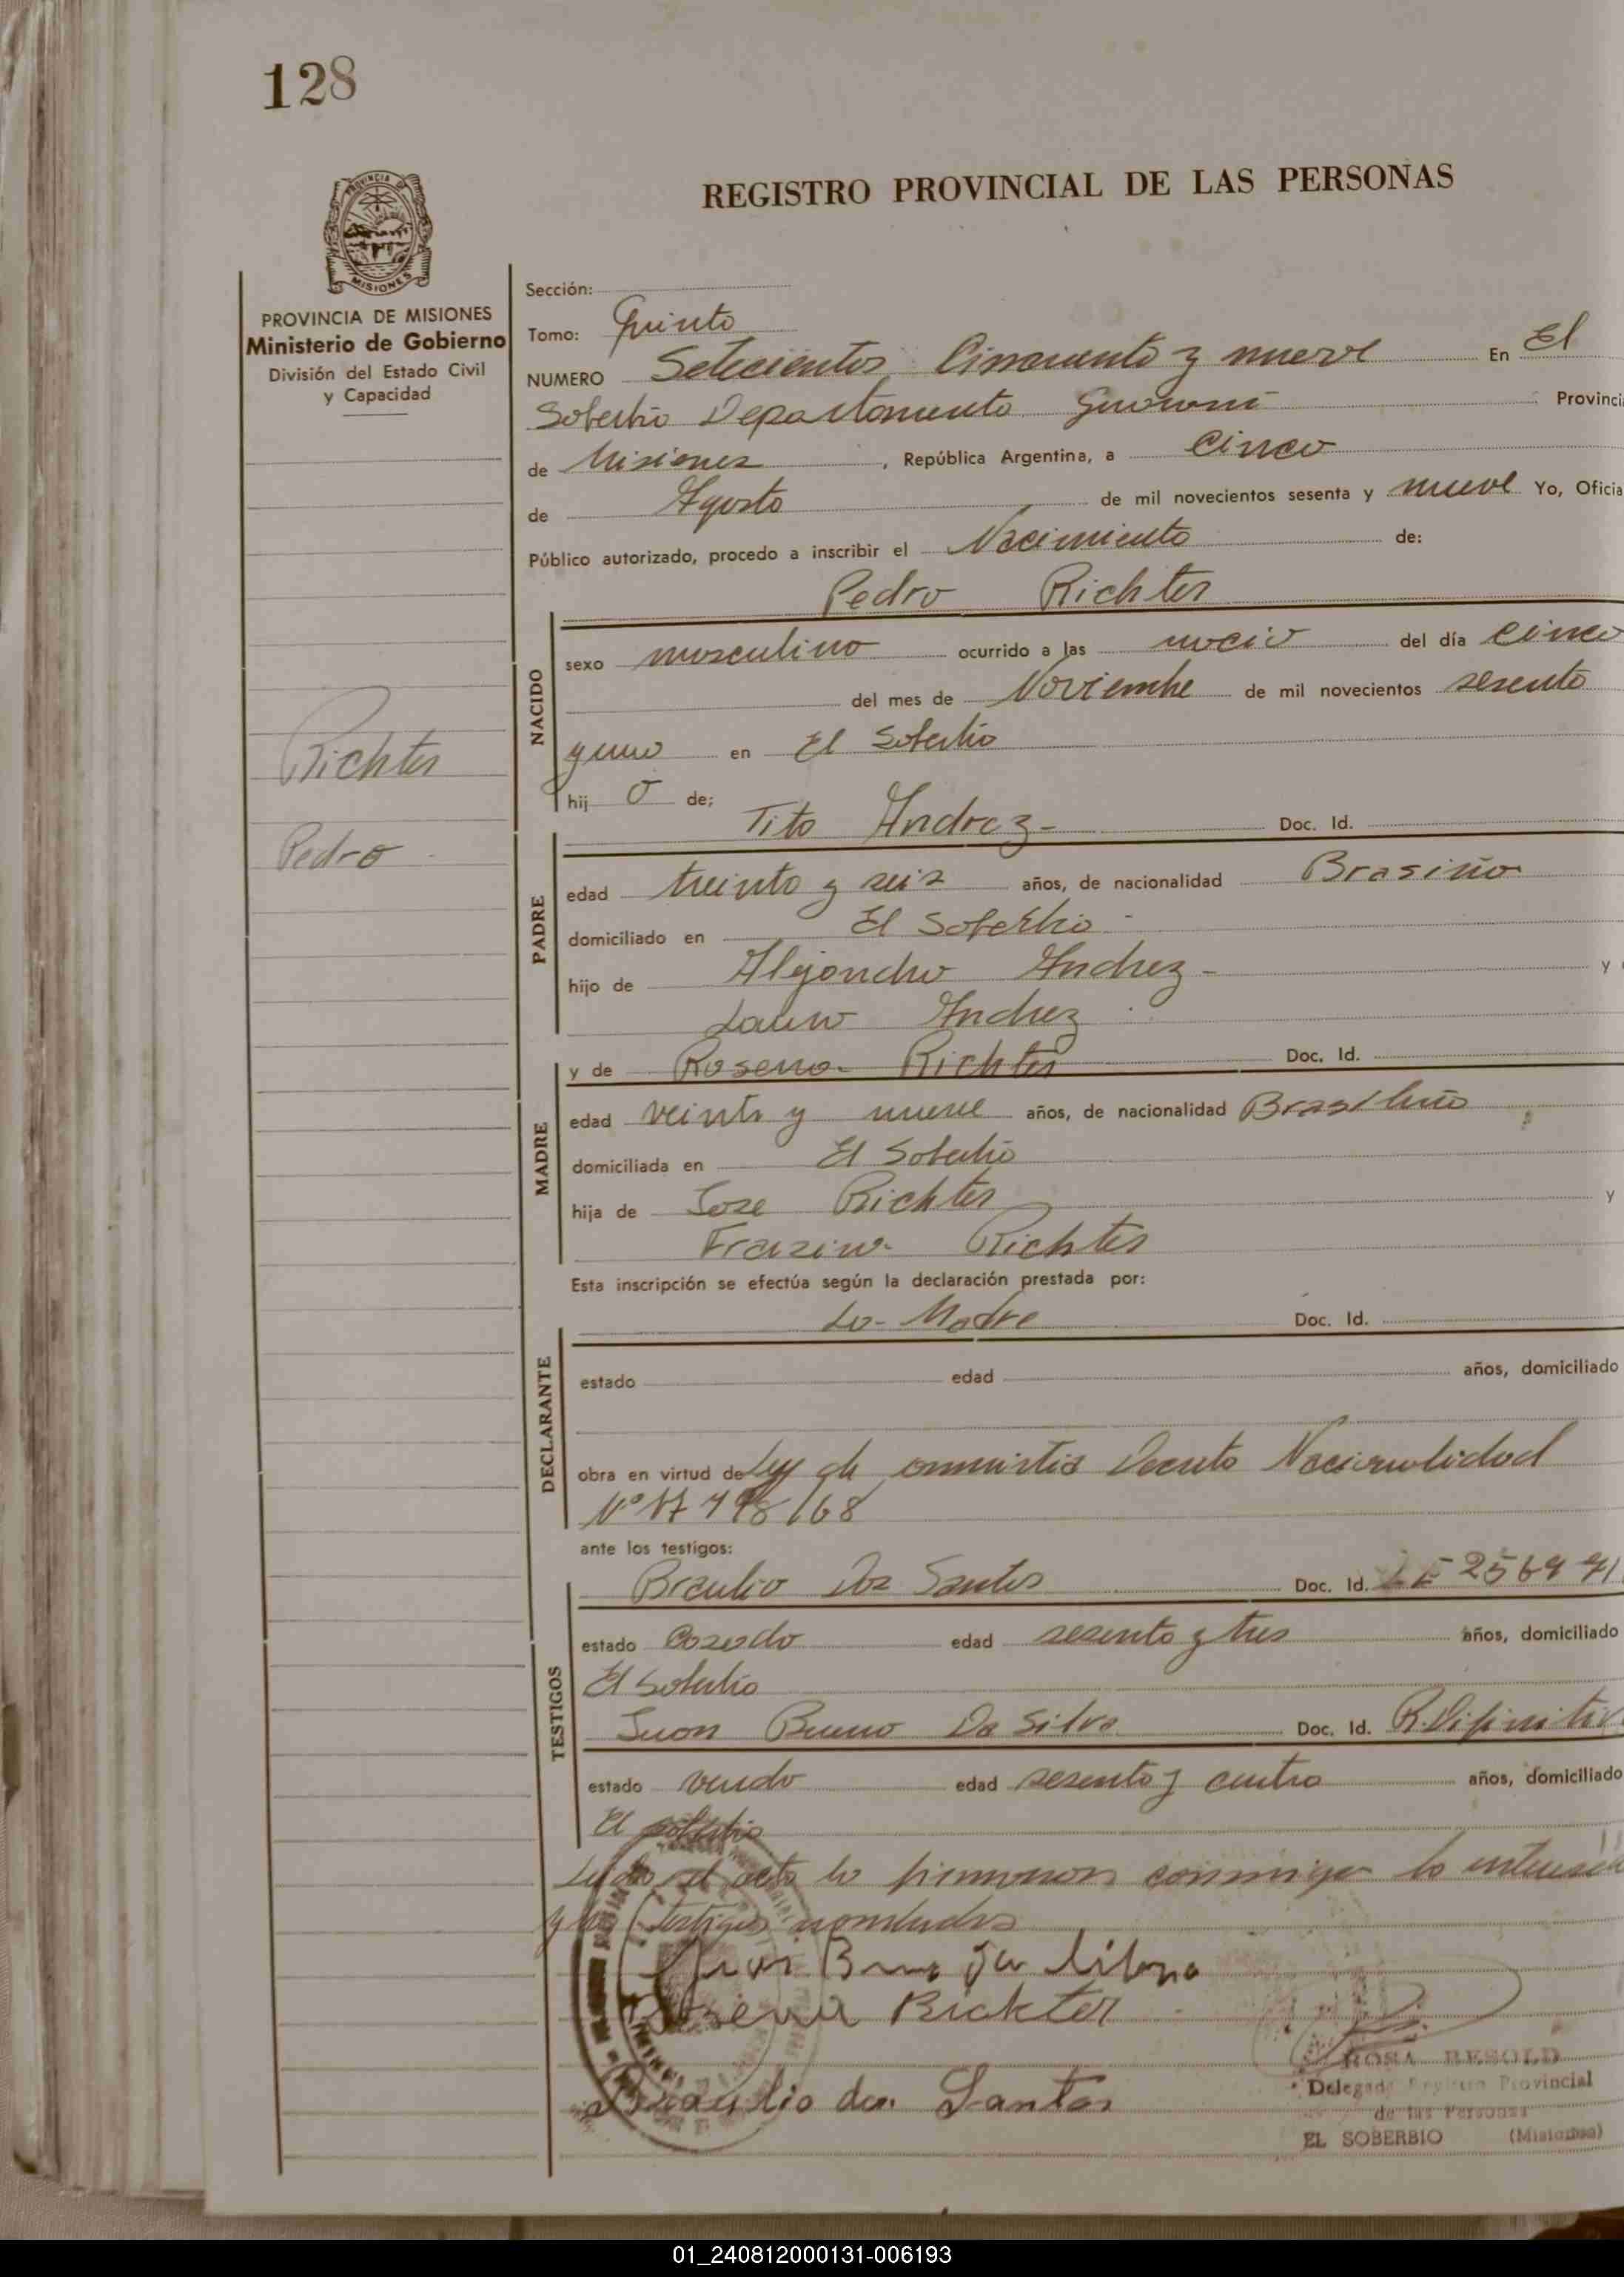 128
REGISTRO PROVINCIAL DE LAS PERSONAS
PROVINCIA DE MISIONES
MISIONES
PROVINCIA DE MISIONES
Ministerio de Gobierno
División del Estado Civil
y Capacidad
Richter
Pedro
Sección:
Tomo: Quinto
NUMERO Setecientos Cincuenta y nueve En El
Soberbio Departamento Guarani Provinci
de Misiones, República Argentina, a Cinco
de Agosto de mil novecientos sesenta y nueve Yo, Oficia
Público autorizado, procedo a inscribir el Nacimiento de:
Pedro Richter
NACIDO
sexo masculino ocurrido a las nació del día cinco
del mes de Noviembre de mil novecientos sesenta
y uno en El Soberbio
hij o de;
Tito Andrez - Doc. Id.
PADRE
edad treinta y seis años, de nacionalidad
domiciliado en El Soberbio -
hijo de Alejandro Andrez - y
Laura Andrez
y de Rosena Richter Doc. Id.
MADRE
edad veinte y nueve años, de nacionalidad
domiciliada en El Soberbio
hija de Jose Richter y
Richter
Esta inscripción se efectúa según la declaración prestada por:
La Madre Doc. Id.
DECLARANTE
estado edad años, domiciliado
obra en virtud de Ley de amnistia Decreto Nacionalidad
Nº
ante los testigos:
Braulio Dos Santos Doc. Id.
TESTIGOS
estado Casado edad sesenta y tres años, domiciliado
El Soberbio
Juan Bueno Da Silva Doc. Id.
estado viudo edad sesenta y cuatro años, domiciliado
El Soberbio
Leida el acta la firmaron conmigo la
y los testigos nombrados
Richter
Braulio dos Santos
ROSA RESOLD
Delegada Registro Provincial
de las Personas
EL SOBERBIO (Misiones)
01_240812000131-006193